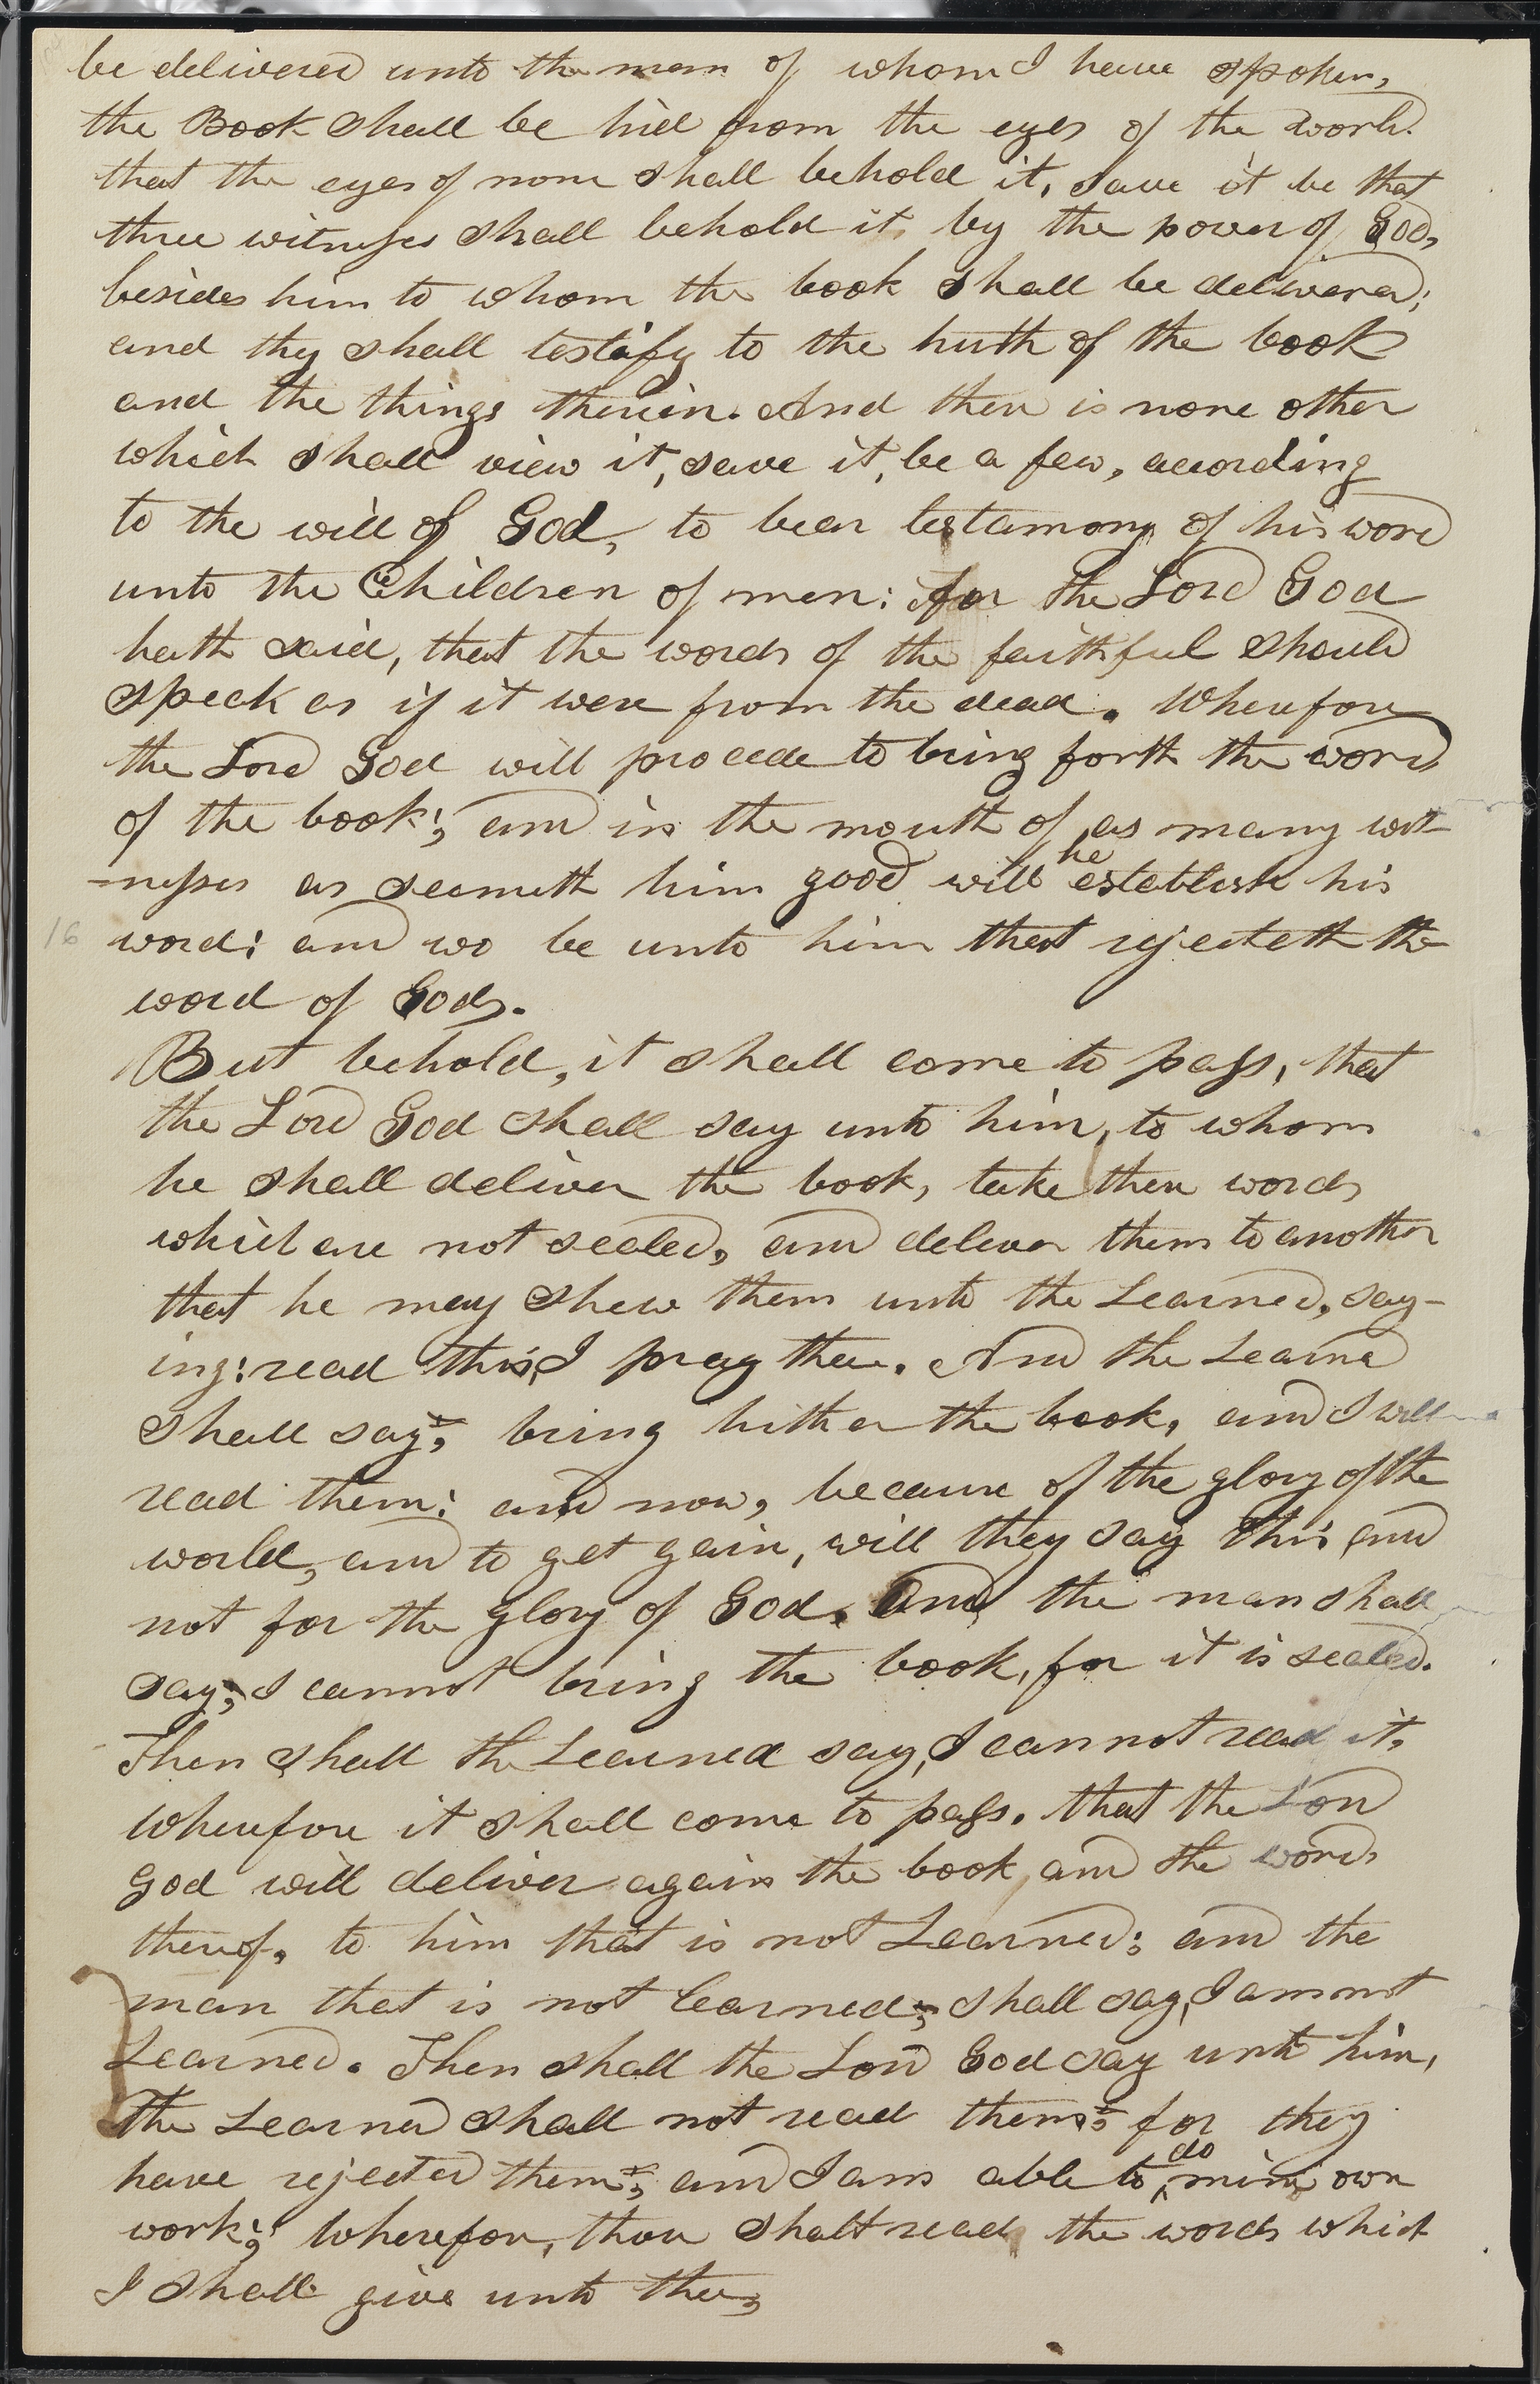 be delivered unto the man of whom I have spoken,
the Book shall be hid from the eyes of the world.
that the eyes of none shall behold it, save it be that
three witnesses shall behold it, by the power of God,
besides him to whom the book shall be delivered;
and they shall testify to the truth of the book
and the things therein. And there is none other
which shall view it, save it, be a few, acording
to the will of God, to bear testamony of his word
unto the Children of men: for the Lord God
hath said, that the words of the faithful should
speak as if it were from the dead. Wherefore
the Lord God will procede to bring forth the words
of the book; and in the mouth of as many wit-
he
-nesses as seemeth him good will establish his
16 word: and wo be unto him that rejecteth the
word of God.
But behold, it shall come to pass, that
the Lord God shall say unto him, to whom
he shall deliver the book, take these words
which are not sealed, and deliver them to another
that he may shew them unto the Learned, say-
ing: read this, I pray thee. And the Learned
shall say; bring hither the book, and I will
read them: and now, because of the glory of the
world, and to get gain, will they say this and
not for the glory of God. And the man shall
say; I cannot bring the book, for it is sealed.
Then shall the Learned say, I cannot read it,
wherefore it shall come to pass. that the Lord
God will deliver again the book and the words
thereof, to him that is not Learned; and the
man that is not learned; shall say, I am not
Learned. Then shall the Lord God say unto him,
the Learned shall not read them; for they
do
have rejected them; and I am able to ^ mine own
work; Wherefore, thou shalt read the words which
I shall give unto thee,